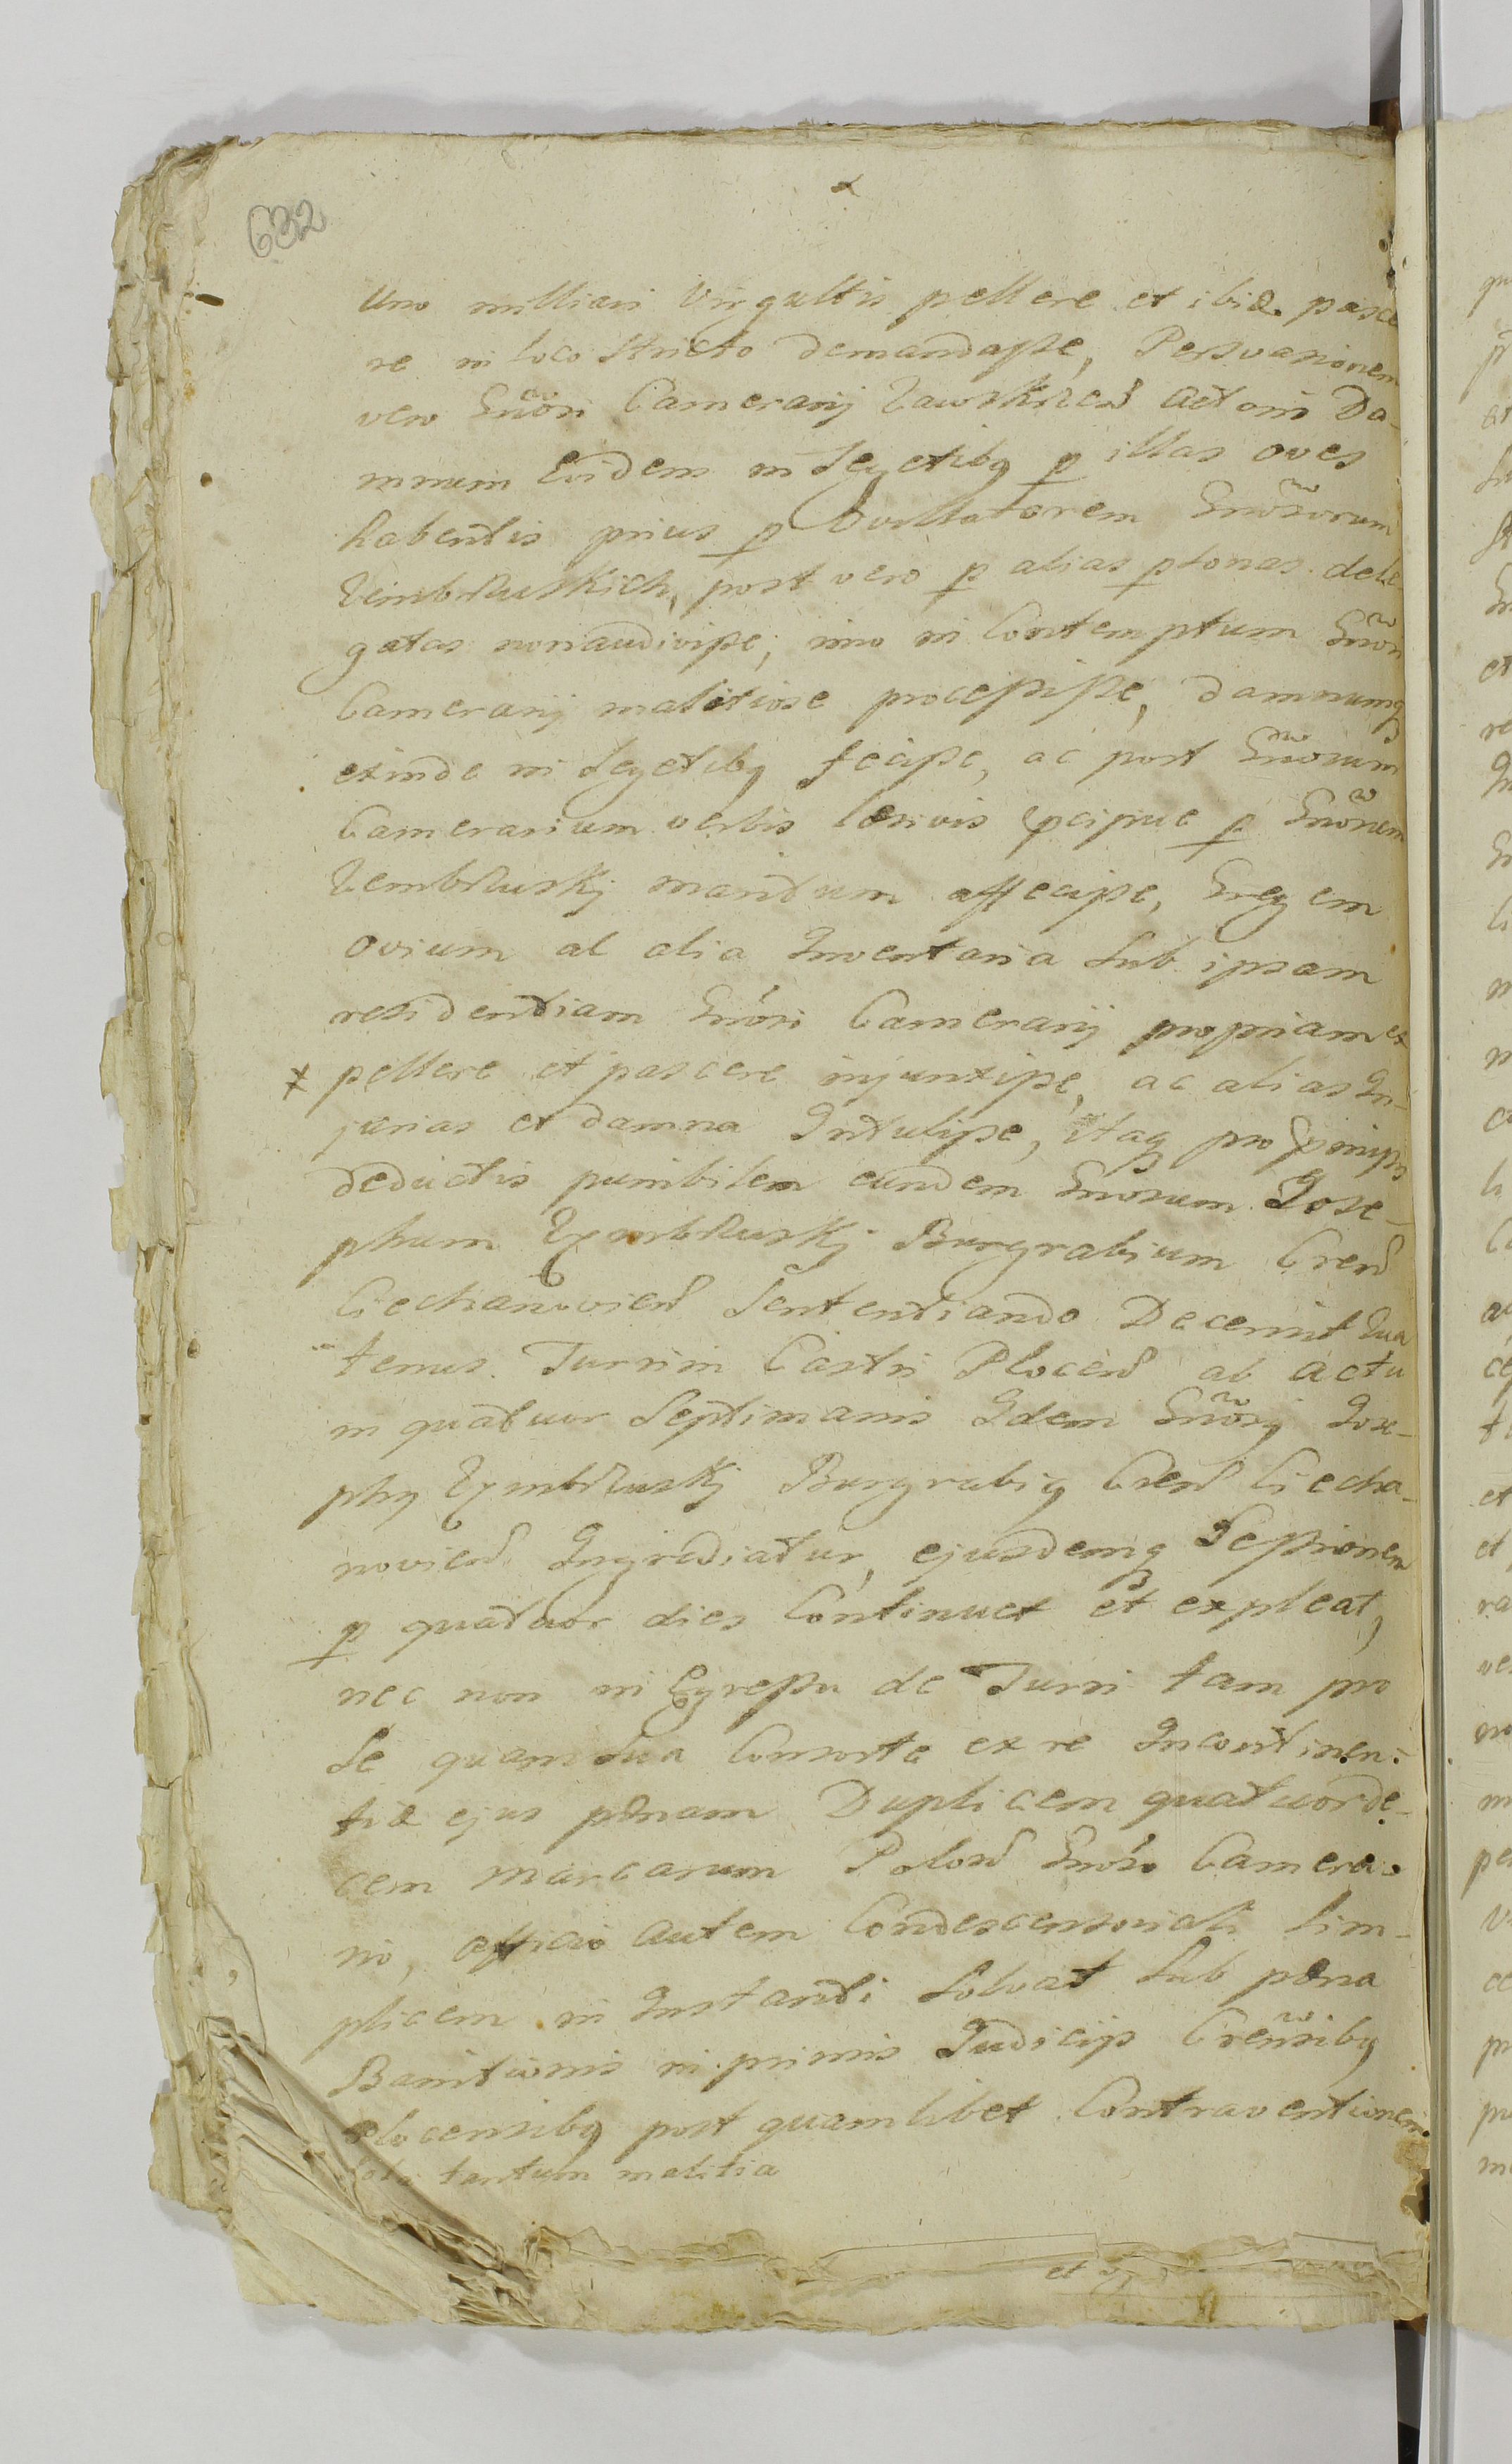 632
Uno milliari Virgultis pellere et ibid. pasce
re in loco stricto demandasse, Persvasionem
vero Gnosi Camerarij Zawskrzen Actoris Da-
mnum Eidem in Segetibq p illas oves
habentis prius p Ovillatorem Gnosorum
Zembrzuskich, post vero p alias psonas dele
gatas non audivisse, imo in Contemptum Gnosi
Camerarij malitiose processisse, damnumq
exinde in Segetibq fecisse, ac post Gnosum
Camerarium verbis læsivis pcipue p Gnosum
Zembrzuskj maritum affecisse, Gregem
Ovium al alia Inventaria Sub ipsam
residentiam Gnosi Camerarij propriam ex
pellere et pascere injunxisse, ac alias In-
jurias et damna Intulisse, itaq pro pmissis
deductis punibilem eundem Gnosum Jose-
phum Zembrzuskj Burgrabium Cren
Ciechanovien Sententiando Decernit Qua
tenus Turrim Castri Plocen ab actu
in quatuor Septimanis Idem Gnosq Jose-
phq Zembrzuskj Burgrabiq Cren Ciecha-
novien Ingrediatur, ejusdemq Sessionem
p quatuor dies Continuet et expleat,
nec non in Egressu de Turri tam pro
Se quam Sua Consorte ex re Incontinen-
tiæ ejus pœnam Duplicem quatuorde-
cem Marcarum Polon Gnoso Camera-
rio, officio autem Condescensoriali Sim-
plicem in Instanti Solvat Sub pœna
Banitionis in primis Judicijs Crensibq
Plocensibq post quamlibet Contraventionem
tantum malitia
et